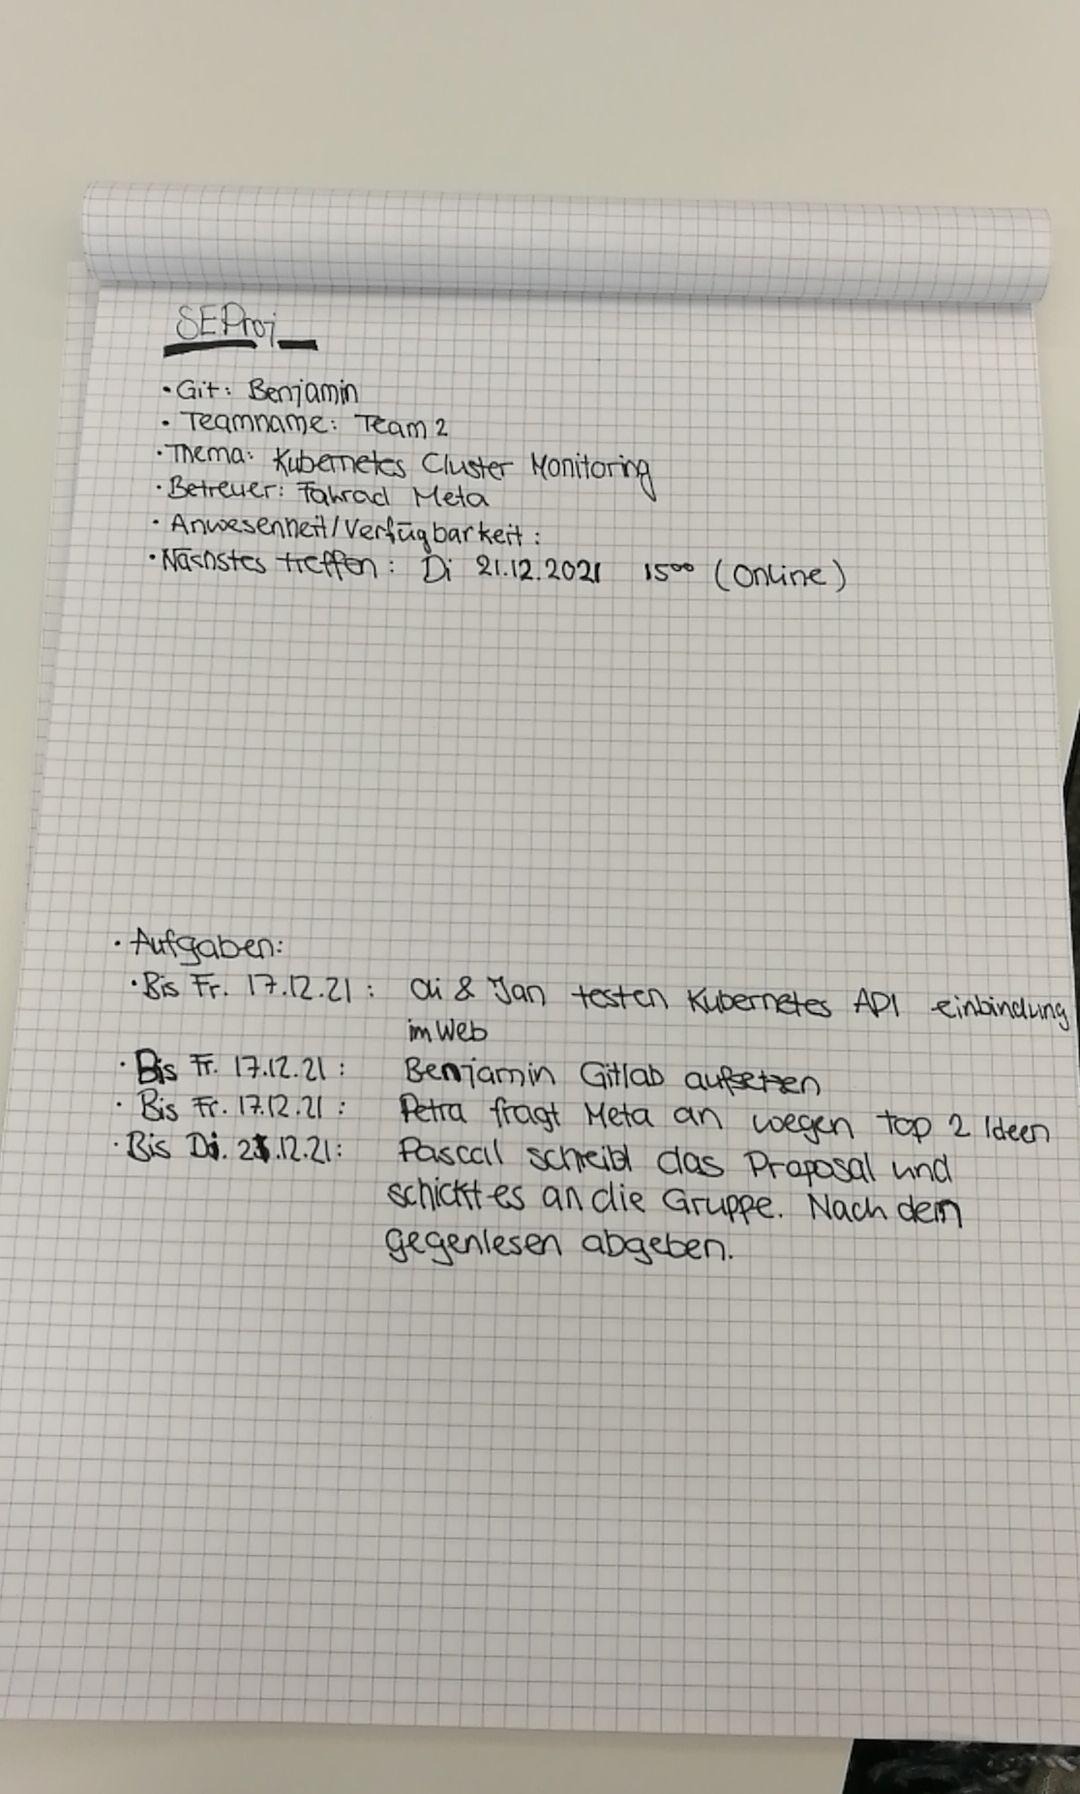 SEProj
• Git: Benjamin
• Teamname: Team 2
• Thema: Kubernetes Cluster Monitoring
• Betreuer: Fahrad Meta
• Anwesenheit/Verfügbarkeit:
• Nächstes treffen: Di 21.12.2021 15⁰⁰ (Online)
• Aufgaben:
• Bis Fr. 17.12.21: Oli & Jan testen Kubernetes API einbindung
im Web
• Bis Fr. 17.12.21: Benjamin Gitlab aufsetzen
• Bis Fr. 17.12.21: Petra fragt Meta an wegen top 2 Ideen
• Bis Di. 21.12.21: Pascal schreibt das Proposal und
schickt es an die Gruppe. Nach dem
gegenlesen abgeben.